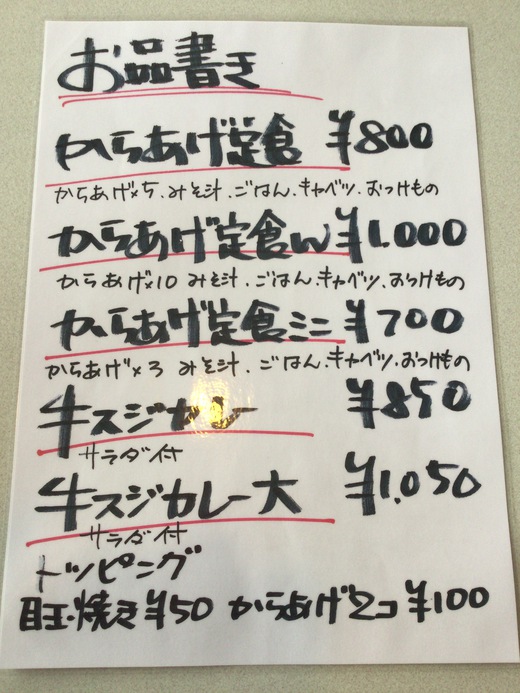 お品書き
からあげ定食 ¥800
からあげ×5.みそ汁.ごはん.キャベツ.おつけもの
からあげ定食W ¥1.000
からあげ×10 みそ汁.ごはん.キャベツ.おつけもの
からあげ定食ミニ ¥700
からあげ×3 みそ汁.ごはん.キャベツ.おつけもの
牛スジカレー ¥850
サラダ付
牛スジカレー大 ¥1,050
サラダ付
トッピング
目玉焼き¥50 からあげ2コ ¥100